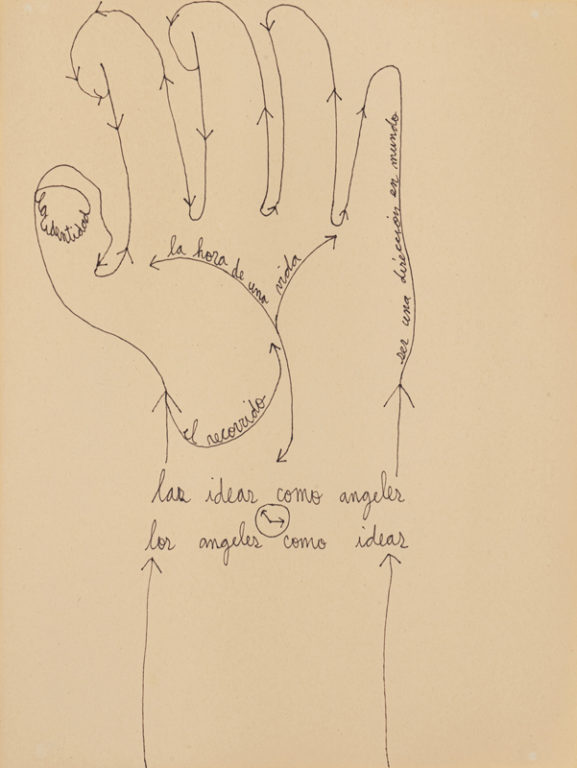 la identidad
la hora de una vida
ser una dirección en mundo
El recorrido
las ideas como angeles
los angeles como ideas